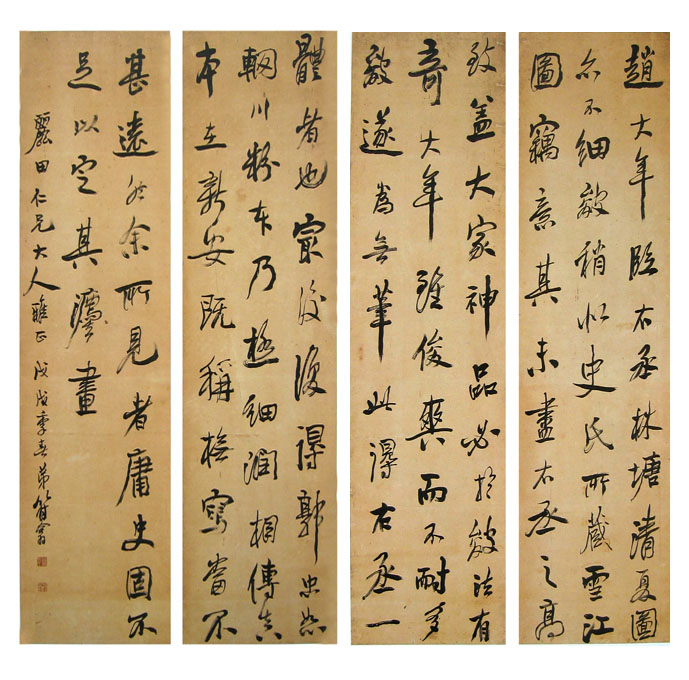 趙大年臨右丞林塘清夏圖
亦不細皴稍似史氏所藏雪江
圖竊意其未盡右丞之高
致蓋大家神品必於皴法有
奇大年雖俊爽而不耐多
皴遂為無筆此得右丞一
體者也最後復得郭忠恕
輞川粉本乃極細潤相傳真
本在新安既稱摹寫當不
甚遠然余所見者庸史固不
足以定其灋畫
麗田仁兄大人雅正 戊戌季春弟